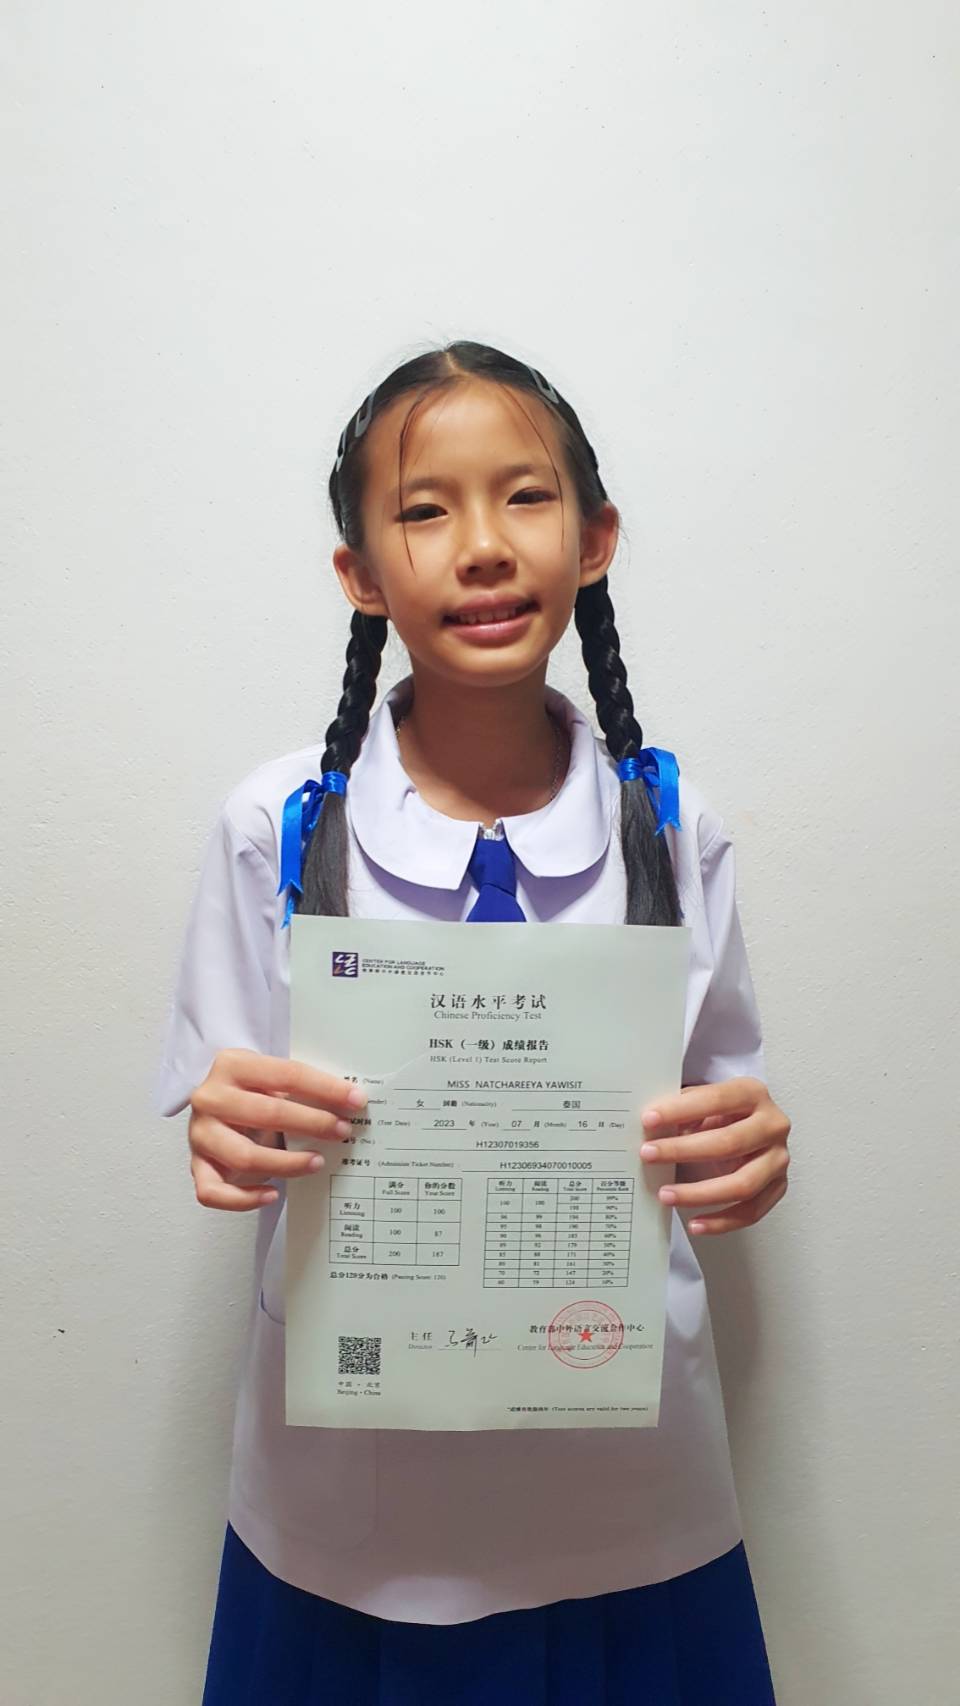 CENTER FOR LANGUAGE
EDUCATION AND COOPERATION
教育部中外语言交流合作中心
汉语水平考试
Chinese Proficiency Test
HSK（一级）成绩报告
HSK (Level 1) Test Score Report
姓名 (Name) MISS NATCHAREEYA YAWISIT
女 国籍 (Nationality) 泰国
时间 (Test Date) 2023 年 (Year) 07 月 (Month) 16 日 (Day)
编号 (No.) H12307019356
准考证号 (Admission Ticket Number) H12306934070010005
满分 Full Score 你的分数 Your Score
听力 Listening 100 100
阅读 Reading 100 87
总分 Total Score 200 187
总分120分为合格 (Passing Score: 120)
听力 Listening 阅读 Reading 总分 Total Score 百分等级 Percentile Rank
100 100 200 99%
198 90%
98 99 194 80%
95 98 190 70%
90 96 185 60%
89 92 179 50%
85 88 171 40%
80 81 161 30%
70 72 147 20%
60 59 124 10%
主任
Director
教育部中外语言交流合作中心
Center for Language Education and Cooperation
中国·北京
Beijing·China
*成绩有效期两年 (Test scores are valid for two years)